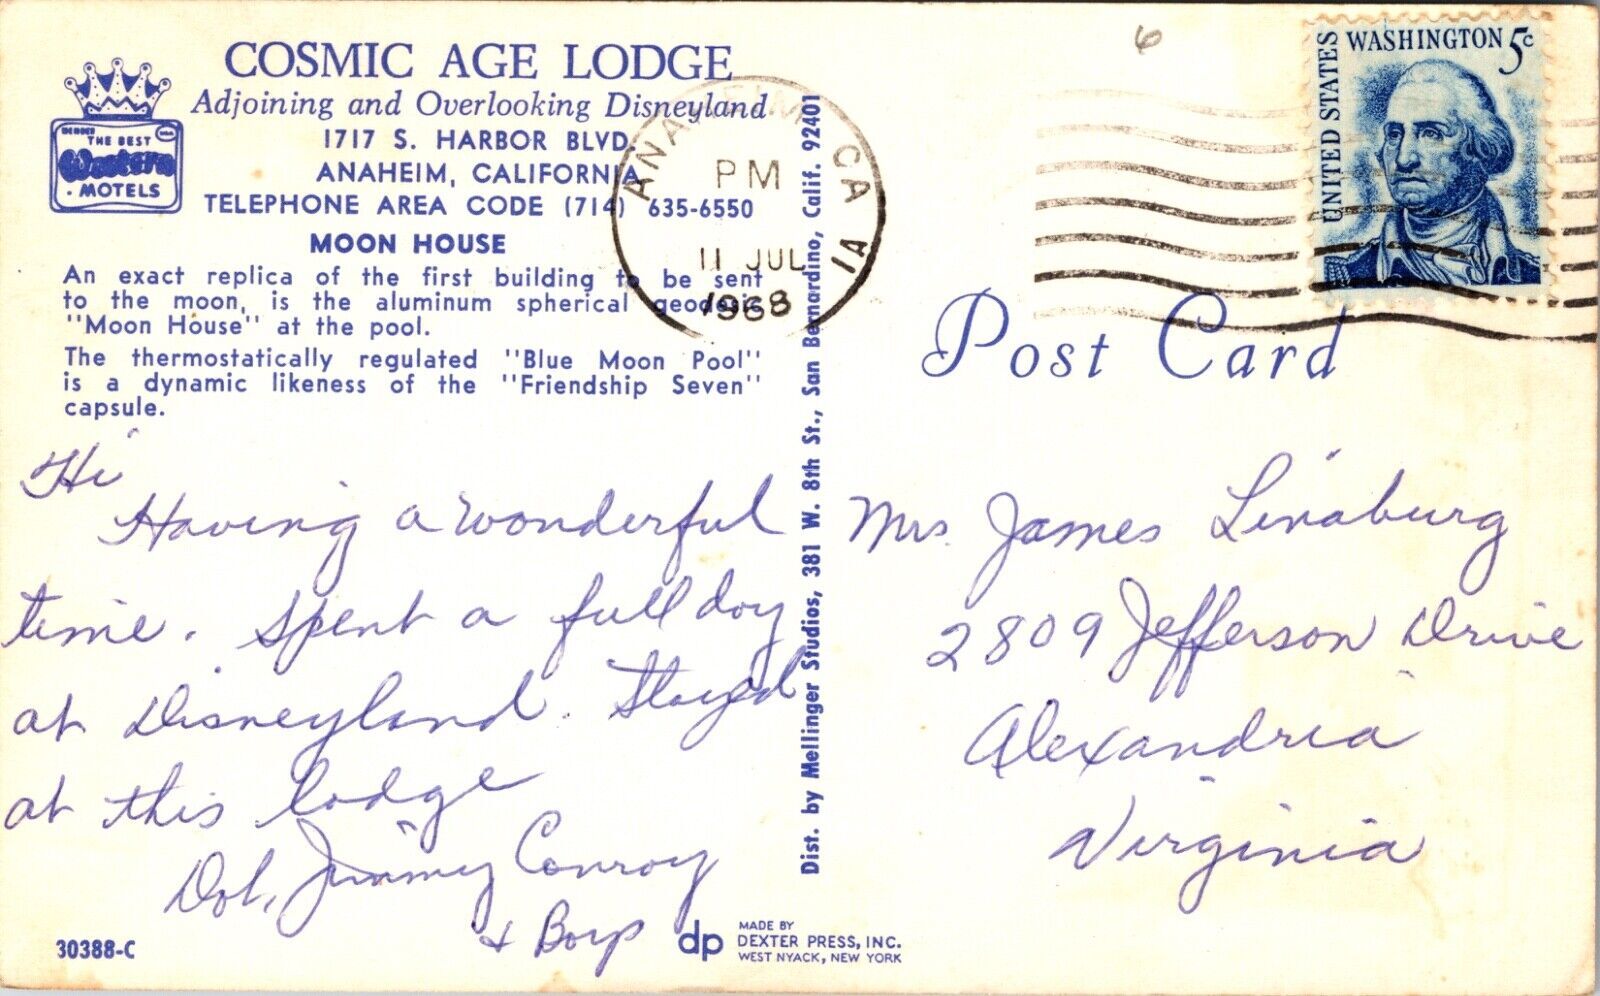 COSMIC AGE LODGE
Adjoining and Overlooking Disneyland
1717 S. HARBOR BLVD.
ANAHEIM, CALIFORNIA
TELEPHONE AREA CODE (714) 635-6550
THE BEST
Western
MOTELS
MOON HOUSE
An exact replica of the first building to be sent
to the moon, is the aluminum spherical geodesic
"Moon House" at the pool.
The thermostatically regulated "Blue Moon Pool"
is a dynamic likeness of the "Friendship Seven"
capsule.
Hi
Having a wonderful
time. Spent a full day
at Disneyland. Stayed
at this lodge
Dot, Jimmy Conroy
& Boys
30388-C
dp
MADE BY
DEXTER PRESS, INC.
WEST NYACK, NEW YORK
Dist. by Mellinger Studios, 381 W. 8th St., San Bernardino, Calif. 92401
ANAHEIM, CA
PM
11 JUL
1968
1A
6
UNITED STATES
WASHINGTON 5c
Post Card
Mrs. James Linaburg
2809 Jefferson Drive
Alexandria
Virginia